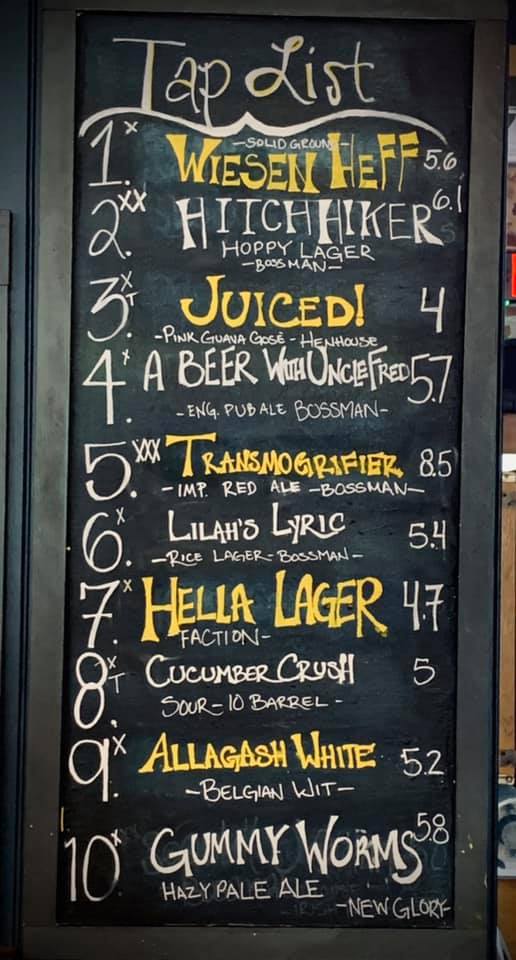 Tap List
1.x
-SOLID GROUND-
WIESEN HEFF 5.6
2.xx HITCHHIKER 6.1
HOPPY LAGER
-BOSSMAN-
3.xT JUICED! 4
-PINK GUAVA GOSÉ - HENHOUSE
4.x A BEER WITH UNCLE FRED 5.7
-ENG. PUB ALE BOSSMAN-
5.xxx TRANSMOGRIFIER 8.5
-IMP. RED ALE -BOSSMAN-
6.x LILAH'S LYRIC 5.4
-RICE LAGER- BOSSMAN-
7.x HELLA LAGER 4.7
FACTION-
8.xT CUCUMBER CRUSH 5
SOUR-10 BARREL-
9.x ALLAGASH WHITE 5.2
-BELGIAN WIT-
10x GUMMY WORMS 5.8
HAZY PALE ALE
-NEW GLORY-